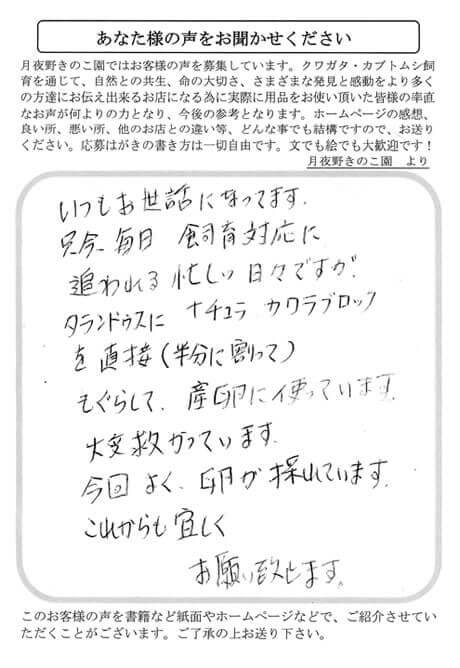 あなた様の声をお聞かせください
月夜野きのこ園ではお客様の声を募集しています。クワガタ・カブトムシ飼
育を通じて、自然との共生、命の大切さ、さまざまな発見と感動をより多く
の方達にお伝え出来るお店になる為に実際に用品をお使い頂いた皆様の率直
なお声が何よりの力となり、今後の参考となります。ホームページの感想、
良い所、悪い所、他のお店との違い等、どんな事でも結構ですので、お送り
ください。応募はがきの書き方は一切自由です。文でも絵でも大歓迎です！
月夜野きのこ園　より
いつもお世話になってます。
只今、毎日 飼育対応に
追われる 忙しい 日々ですが、
タランドゥスに ナチュラ カワラブロック
を 直接（半分に割って）
もぐらして、産卵に使っています。
大変救かっています。
今回 よく、卵が 採れています。
これからも宜しく
お願い致します。
このお客様の声を書籍など紙面やホームページなどで、ご紹介させてい
ただくことがございます。ご了承の上お送り下さい。